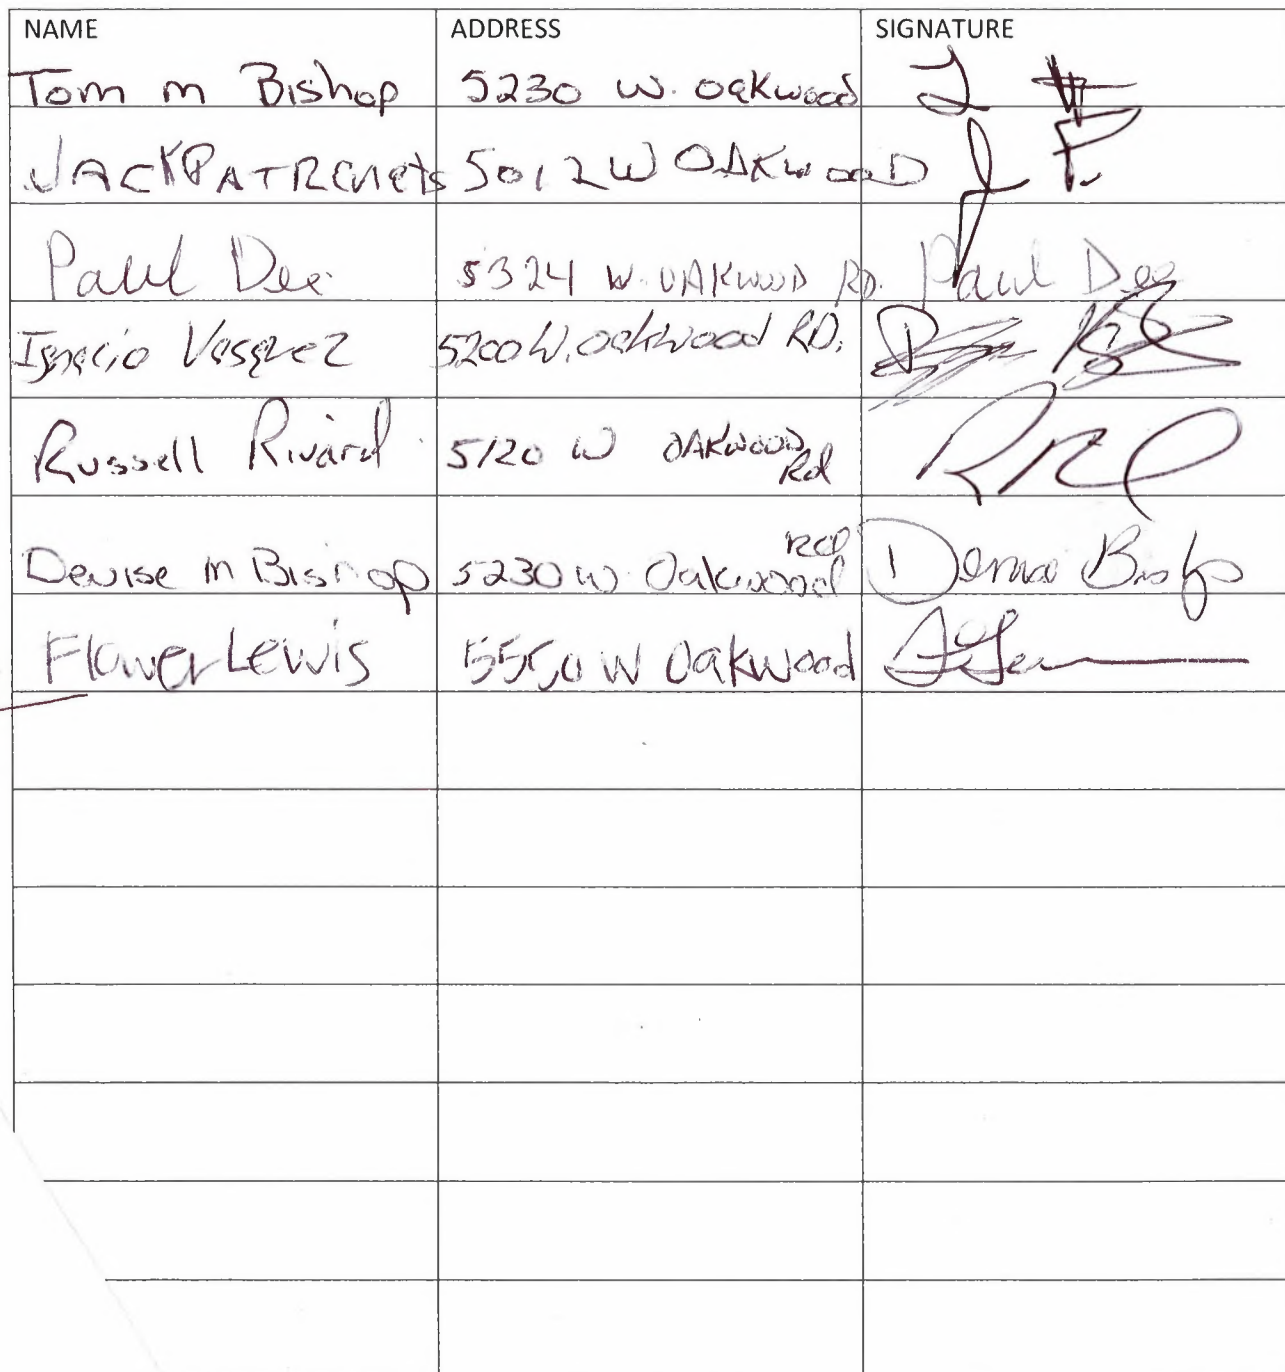 NAME ADDRESS SIGNATURE
Tom m Bishop 5230 W. Oakwood
JACK 5012 W OAKWOOD
Paul Dee 5324 W. OAKWOOD RD. Paul Dee
Ignacio Vasquez 5200 W. Oakwood RD.
Russell Rivard 5120 W OAKWOOD Rd
Denise M Bishop 5230 W Oakwood Denise Bishop
Flower Lewis 5550 W Oakwood